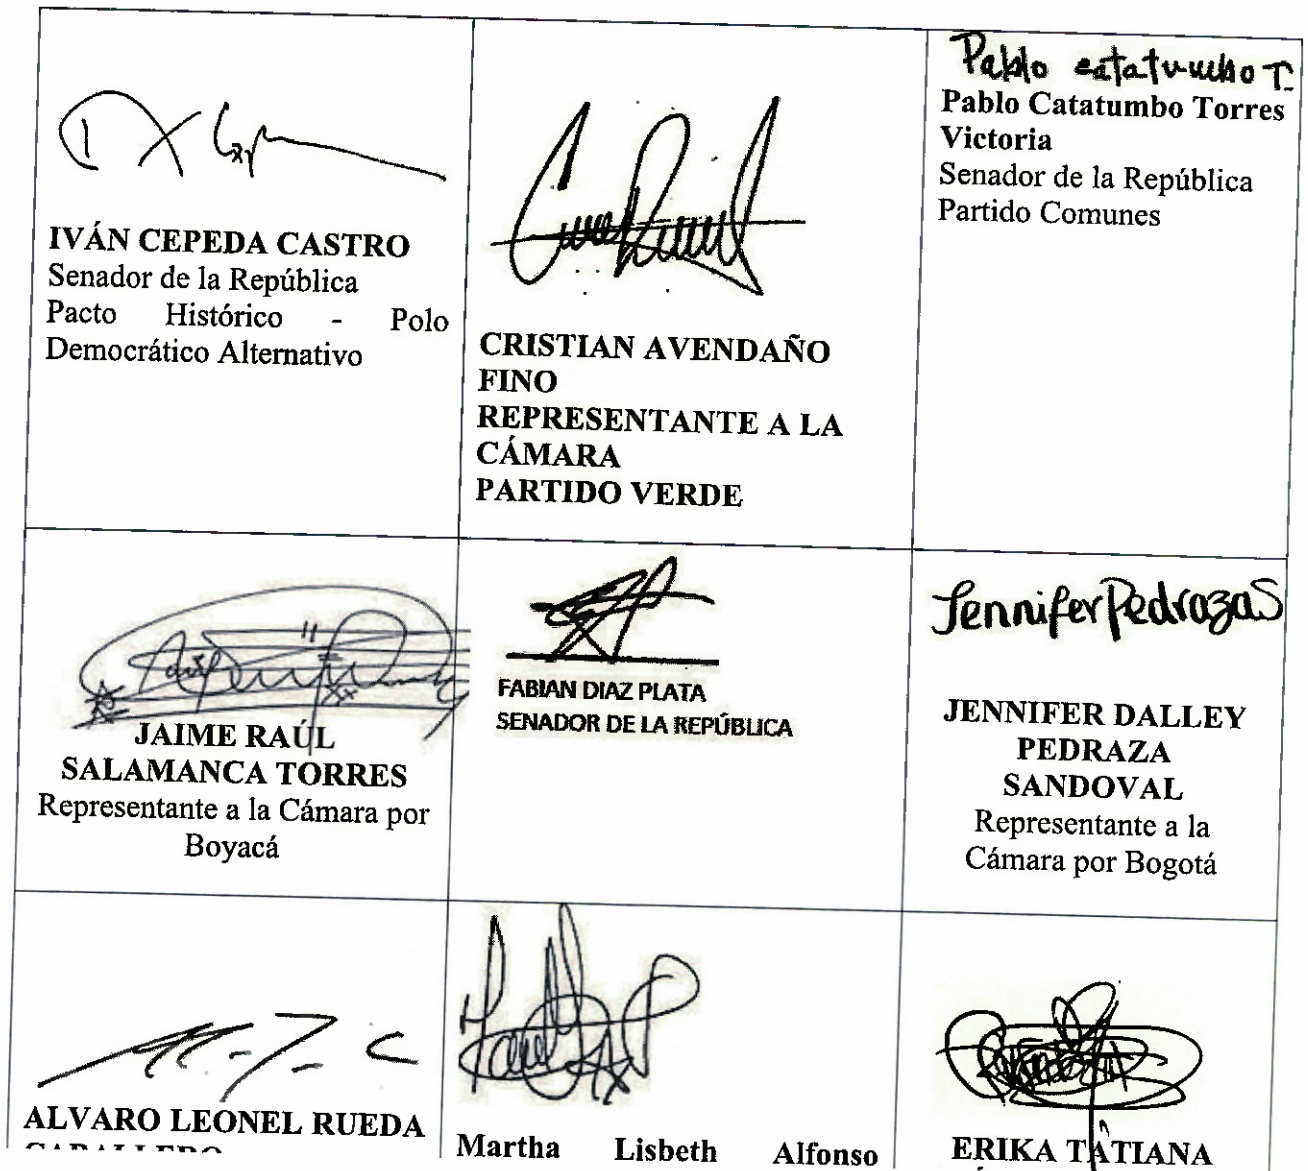 IVÁN CEPEDA CASTRO
Senador de la República
Pacto Histórico - Polo
Democrático Alternativo
CRISTIAN AVENDAÑO
FINO
REPRESENTANTE A LA
CÁMARA
PARTIDO VERDE
Pablo Catatumbo T.
Pablo Catatumbo Torres
Victoria
Senador de la República
Partido Comunes
JAIME RAÚL
SALAMANCA TORRES
Representante a la Cámara por
Boyacá
FABIAN DIAZ PLATA
SENADOR DE LA REPÚBLICA
Jennifer Pedraza S
JENNIFER DALLEY
PEDRAZA
SANDOVAL
Representante a la
Cámara por Bogotá
ALVARO LEONEL RUEDA
Martha Lisbeth Alfonso
ERIKA TATIANA